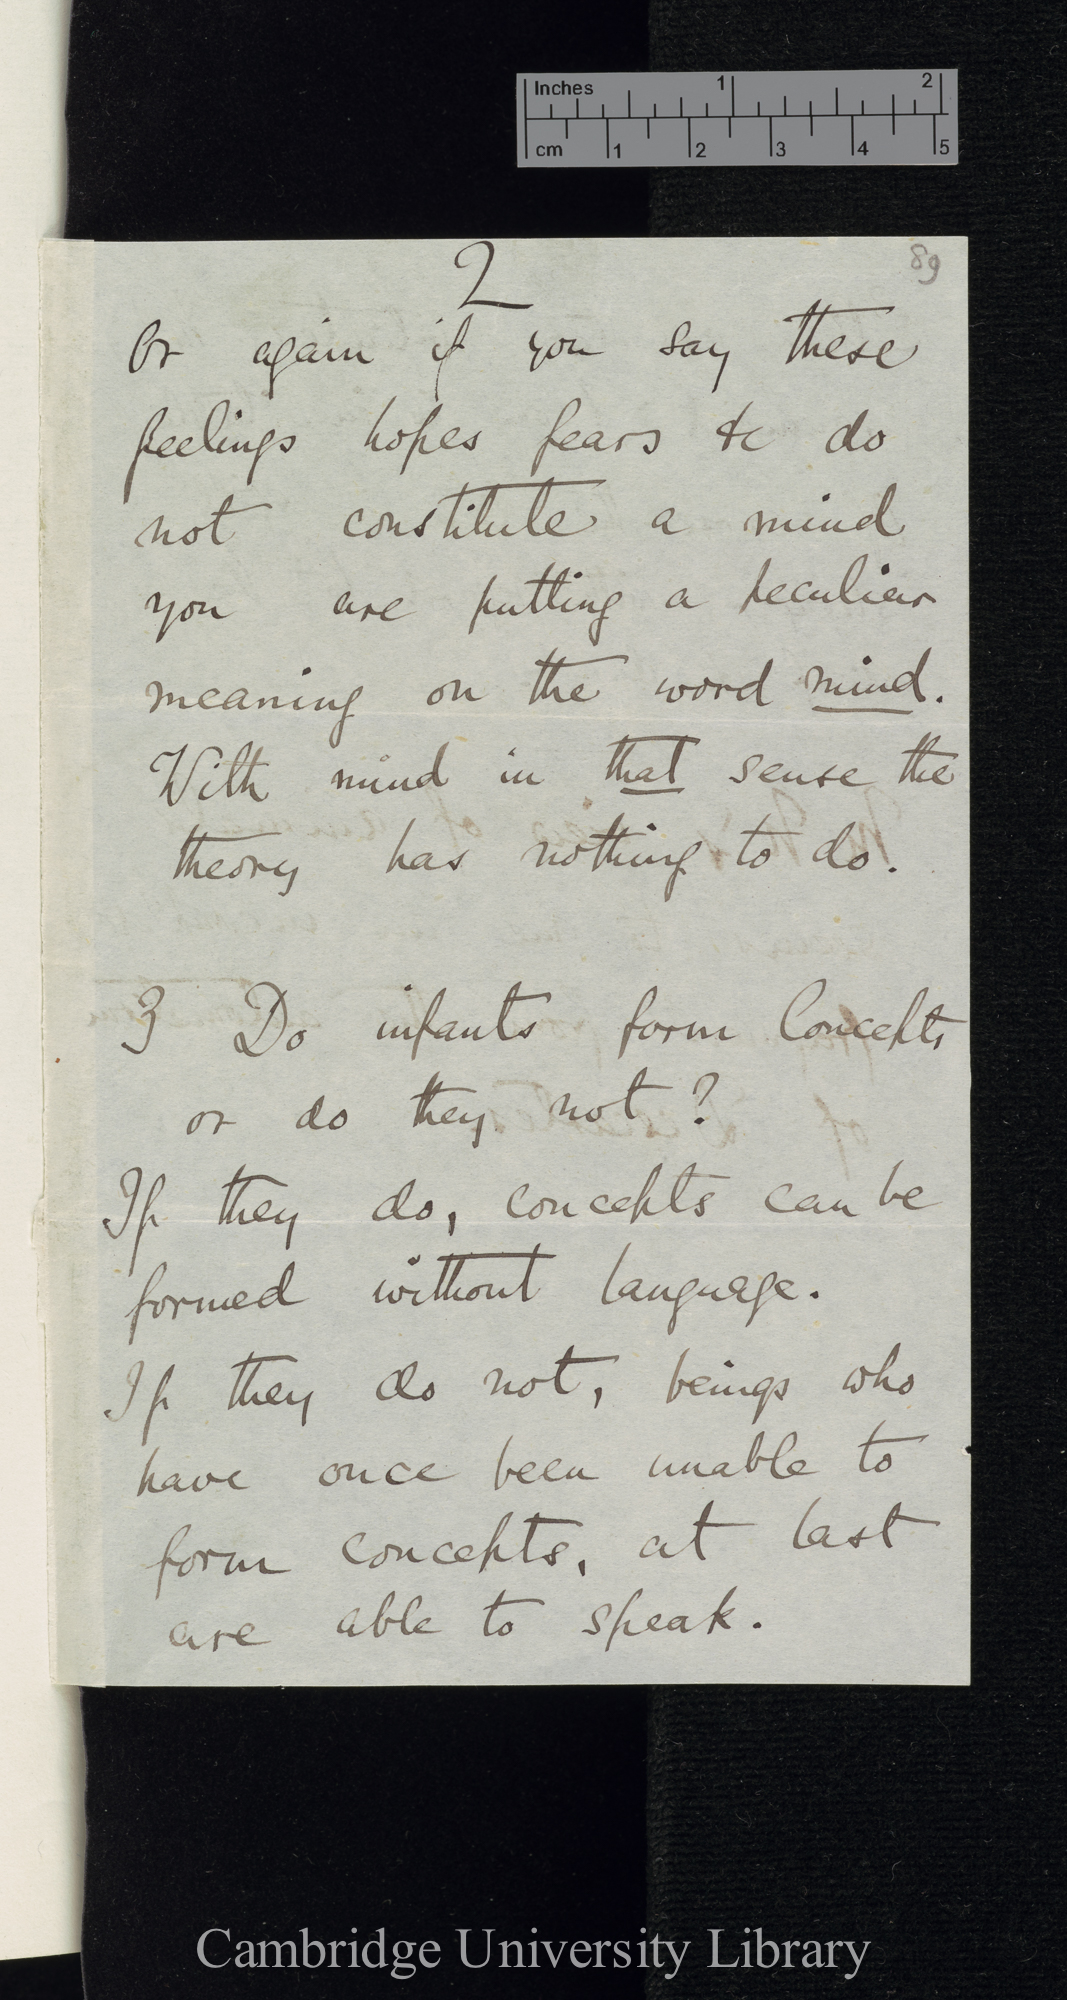 Inches 1 2
cm 1 2 3 4 5
2
89
Or again if you say these
feelings hopes fears &c do
not constitute a mind
you are putting a peculiar
meaning on the word mind.
With mind in that sense the
theory has nothing to do.
3 Do infants form Concepts
or do they not?
If they do, concepts can be
formed without language.
If they do not, beings who
have once been unable to
form concepts, at last
are able to speak.
Cambridge University Library